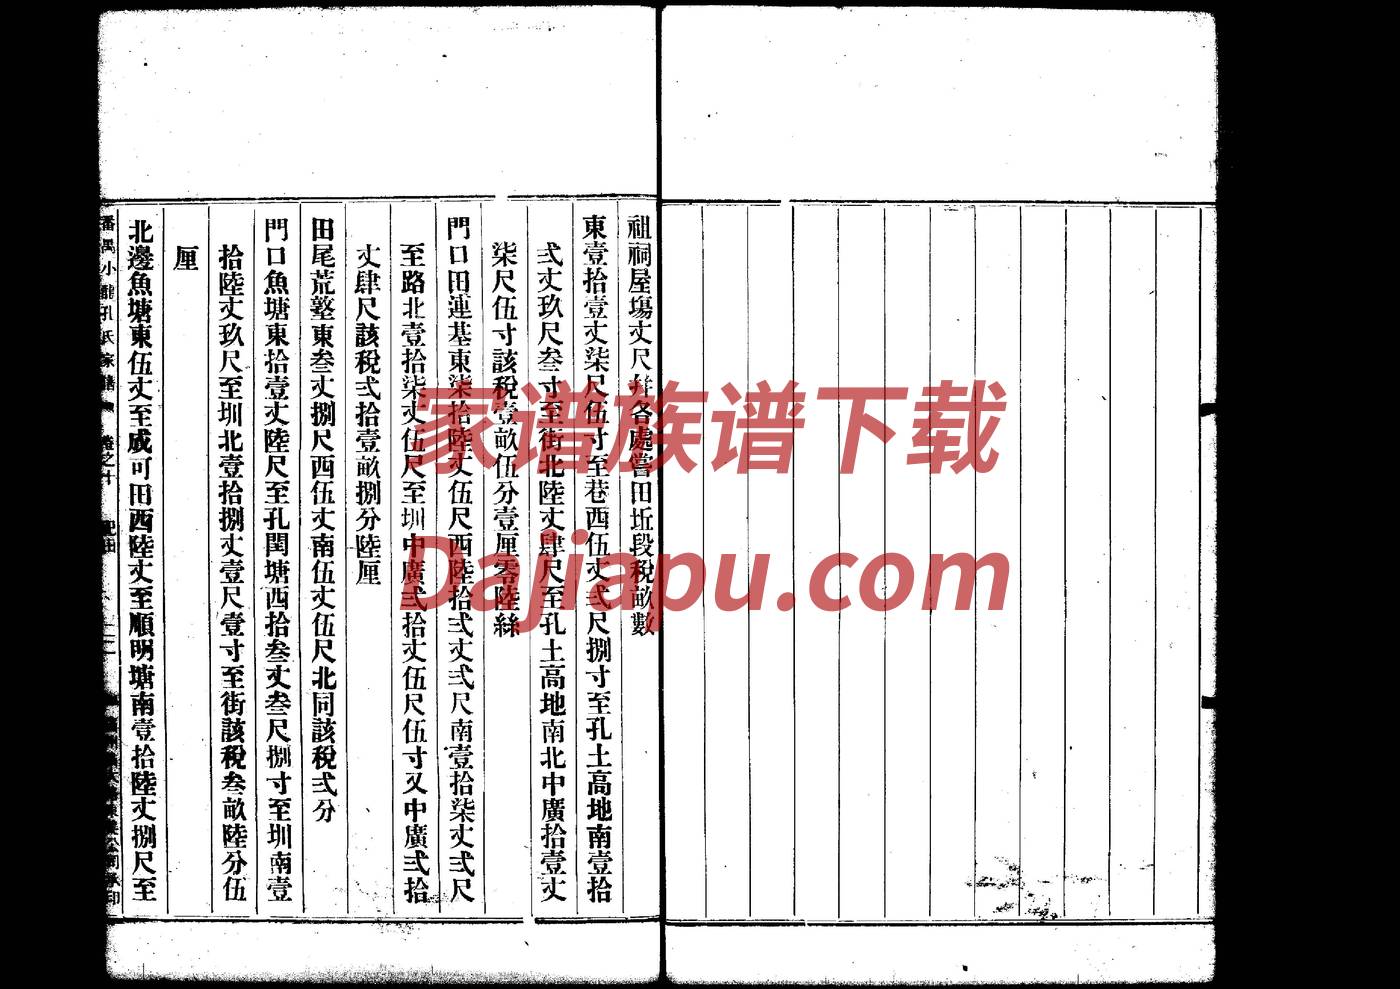 祖祠屋塲丈尺并各處嘗田坵段稅畝數
東壹拾壹丈柒尺伍寸至巷西伍丈弍尺捌寸至孔土高地南壹拾
弍丈玖尺叁寸至街北陸丈肆尺至孔土高地南北中廣拾壹丈
柒尺伍寸該稅壹畝伍分壹厘零陸絲
門口田連基東柒拾陸丈伍尺西陸拾弍丈弍尺南壹拾柒丈弍尺
至路北壹拾柒丈伍尺至圳中廣弍拾丈伍尺伍寸又中廣弍拾
丈肆尺該稅弍拾壹畝捌分陸厘
田尾荒壑東叁丈捌尺西伍丈南伍丈伍尺北同該稅弍分
門口魚塘東拾壹丈陸尺至孔閏塘西拾叁丈叁尺捌寸至圳南壹
拾陸丈玖尺至圳北壹拾捌丈壹尺壹寸至街該稅叁畝陸分伍
厘
北邊魚塘東伍丈至成可田西陸丈至順明塘南壹拾陸丈捌尺至
番禺小龍孔氏家譜 卷之十
家谱族谱下载
Dajiapu.com